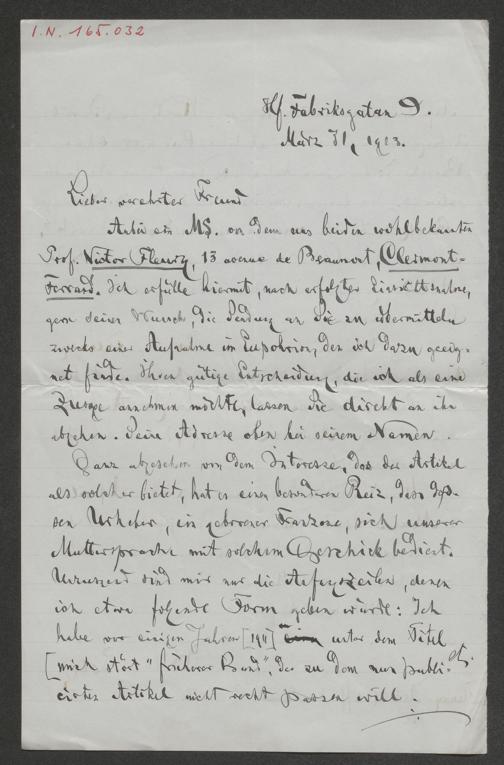 I.N. 165.032
Hf. Fabriksgatan 9.
März 31, 1923.
Lieber verehrter Freund
Anbei ein MS. von dem uns beiden wohlbekannten
Prof. Victor Fleury, 13 avenue de Beaumont, Clermont-
Ferrand. Ich erfülle hiermit, nach erfolgter Einsichtnahme,
gern seinen Wunsch, die Sendung an Sie zu übermitteln
zwecks einer Aufnahme im Euphorion, den ich dazu geeig-
net finde. Ihren gütige Entscheidung, die ich als eine
annehmen möchte, lassen Sie direkt an ihn
abgehen. Seine Adresse oben bei seinem Namen.
Ganz abgesehen von dem Interesse, das der Artikel
als solcher bietet, hat es einen besonderen Reiz, dass des-
sen Urheber, ein geborener Franzose, sich unserer
Muttersprache mit solchem Geschick bedient.
sind mir nur die Anfangszeilen, denen
ich etwa folgende Form geben würde: Ich
habe vor einigen Jahren [1911] unter dem Titel
[mich stört "früherer Band", der zu dem nun publi-
cirten Artikel nicht recht passen will.